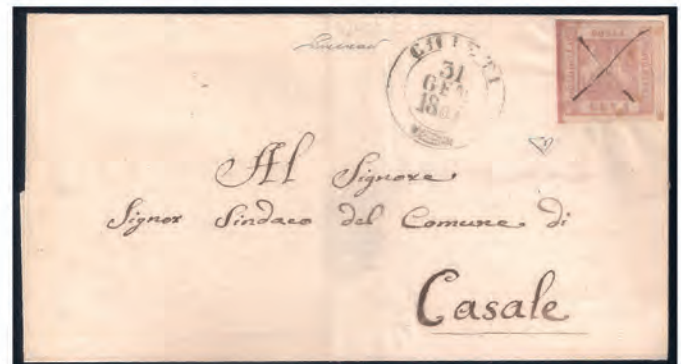 CHIETI
31
GEN
Al Signore
Signor Sindaco del Comune di
Casale